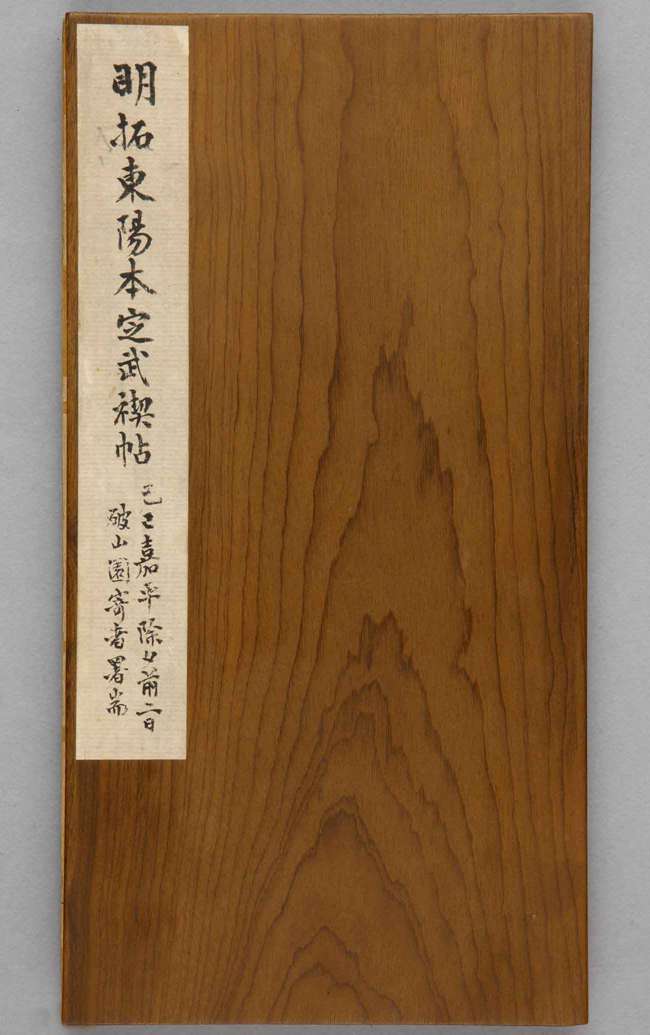 明拓東陽本定武禊帖
己巳嘉平除夕前二日
破山園寄者署耑